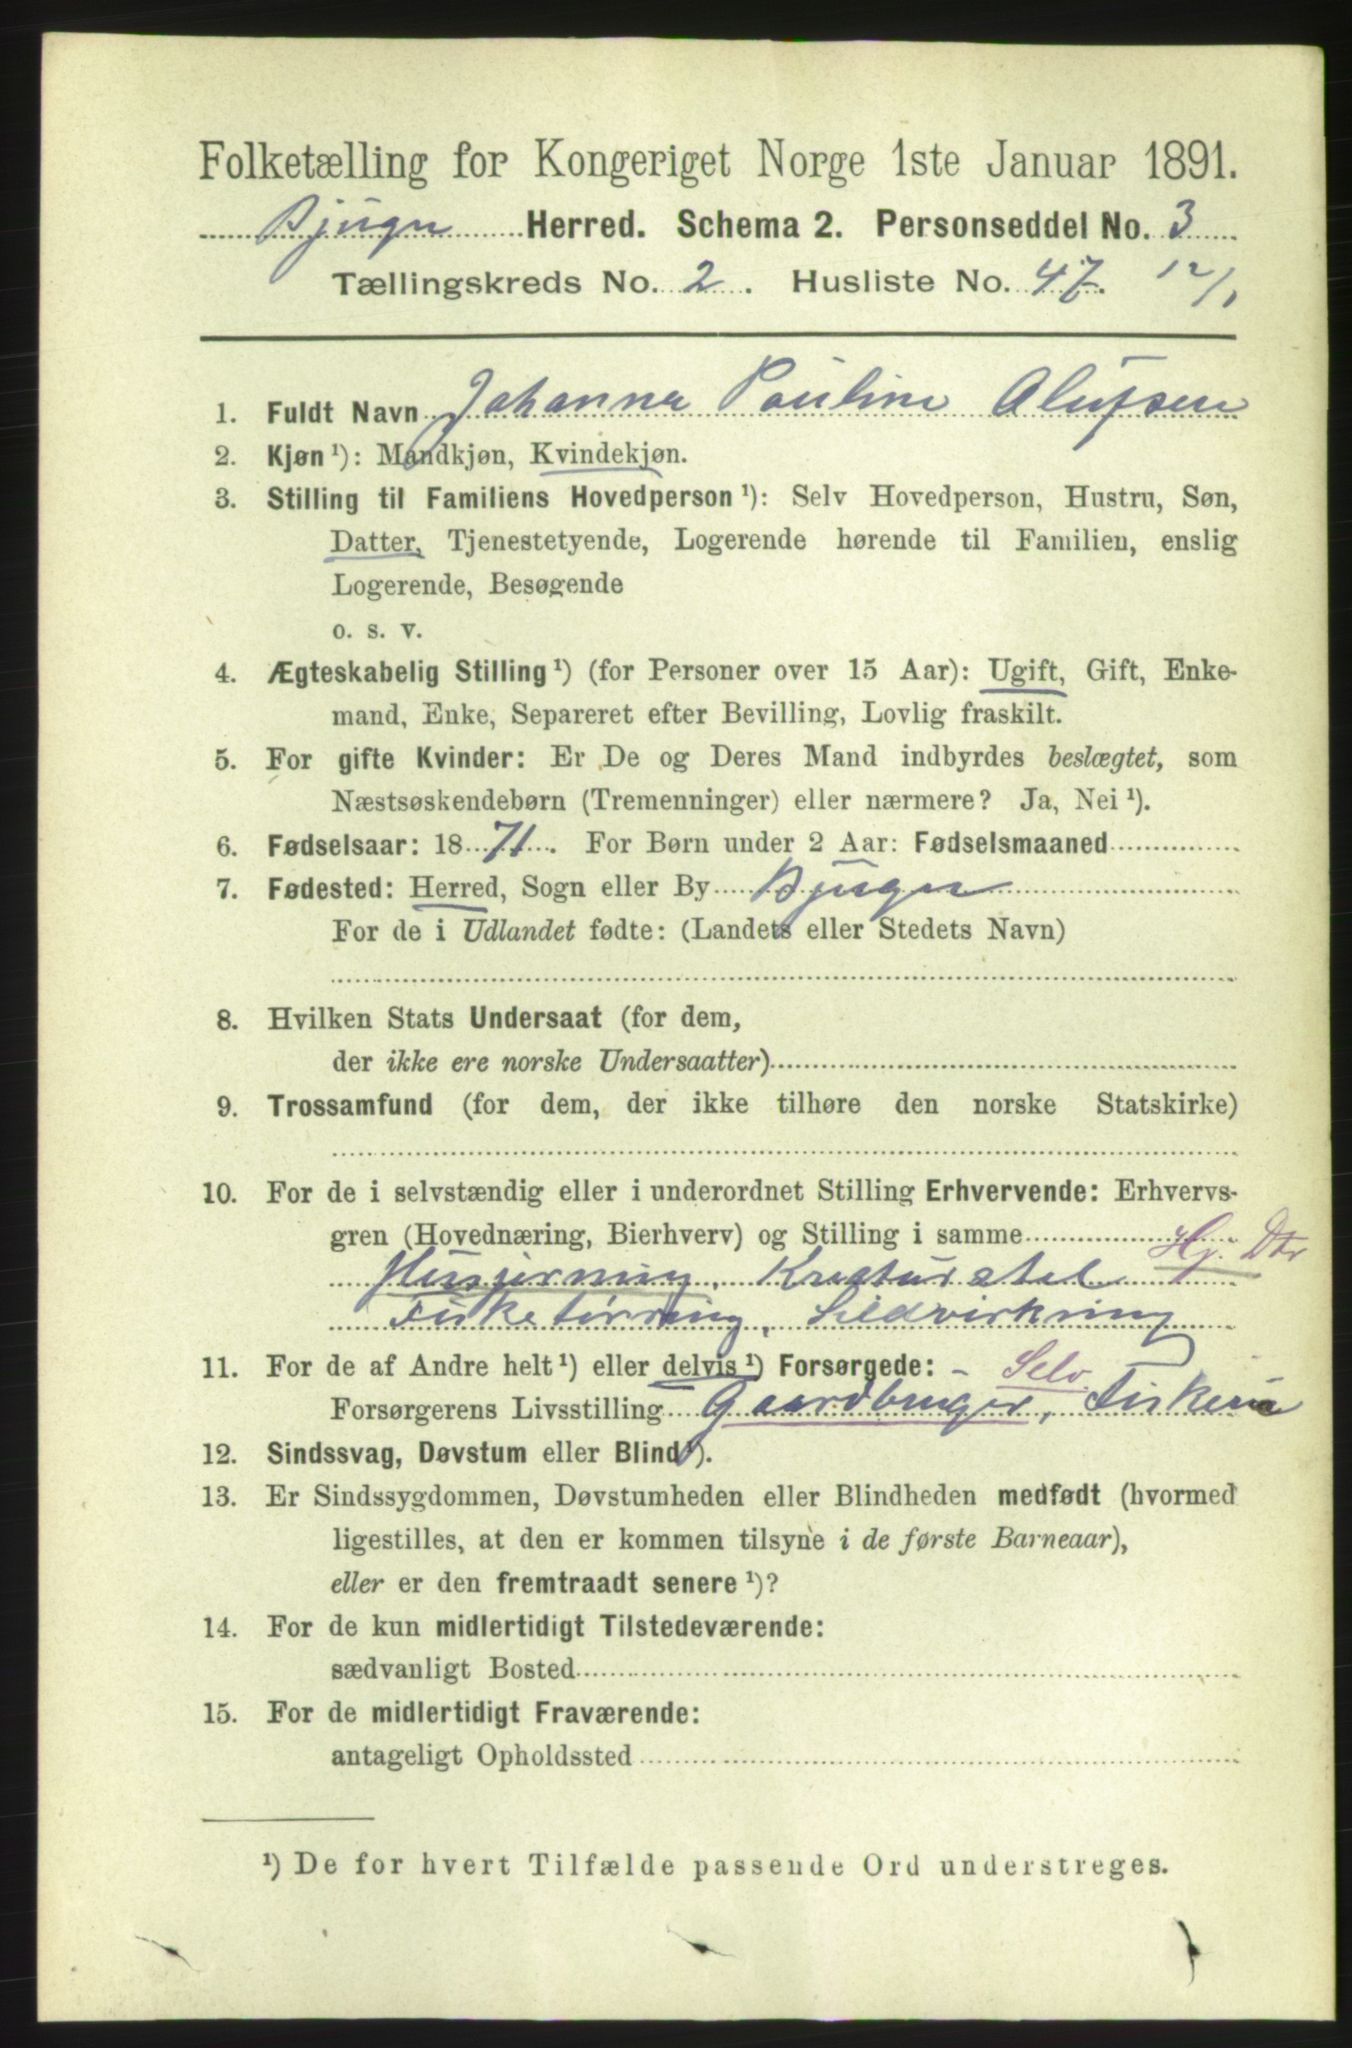 Folketælling for Kongeriget Norge 1ste Januar 1891.
Bjugn Herred. Schema 2. Personseddel No. 3
Tællingskreds No. 2. Husliste No. 47. 12/1
1. Fuldt Navn Johanna Pauline Olufsen
2. Kjøn ¹): Mandkjøn, Kvindekjøn.
3. Stilling til Familiens Hovedperson ¹): Selv Hovedperson, Hustru, Søn,
Datter, Tjenestetyende, Logerende hørende til Familien, enslig
Logerende, Besøgende
o. s. v.
4. Ægteskabelig Stilling ¹) (for Personer over 15 Aar): Ugift, Gift, Enke-
mand, Enke, Separeret efter Bevilling, Lovlig fraskilt.
5. For gifte Kvinder: Er De og Deres Mand indbyrdes beslægtet, som
Næstsøskendebørn (Tremenninger) eller nærmere? Ja, Nei ¹).
6. Fødselsaar: 1871. For Børn under 2 Aar: Fødselsmaaned
7. Fødested: Herred, Sogn eller By Bjugn
For de i Udlandet fødte: (Landets eller Stedets Navn)
8. Hvilken Stats Undersaat (for dem,
der ikke ere norske Undersaatter)
9. Trossamfund (for dem, der ikke tilhøre den norske Statskirke)
10. For de i selvstændig eller i underordnet Stilling Erhvervende: Erhvervs-
gren (Hovednæring, Bierhverv) og Stilling i samme
Husgjerning, Kreaturstel Hj. Dtr
Fisketørring, Sildvirkning
11. For de af Andre helt ¹) eller delvis ¹) Forsørgede: - Selv
Forsørgerens Livsstilling Gaardbruger, Fiskeri
12. Sindssvag, Døvstum eller Blind ¹).
13. Er Sindssygdommen, Døvstumheden eller Blindheden medfødt (hvormed
ligestilles, at den er kommen tilsyne i de første Barneaar),
eller er den fremtraadt senere ¹)?
14. For de kun midlertidigt Tilstedeværende:
sædvanligt Bosted
15. For de midlertidigt Fraværende:
antageligt Opholdssted
¹) De for hvert Tilfælde passende Ord understreges.